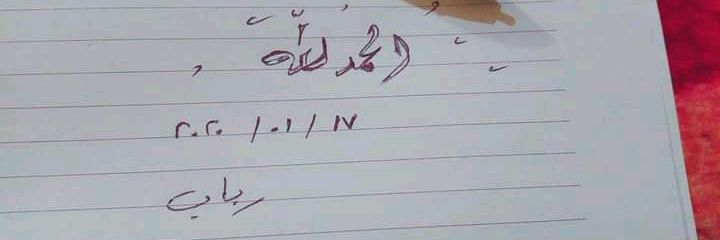 الحمد لله
١٧ / ٠١ / ٢٠٢٠
رباب